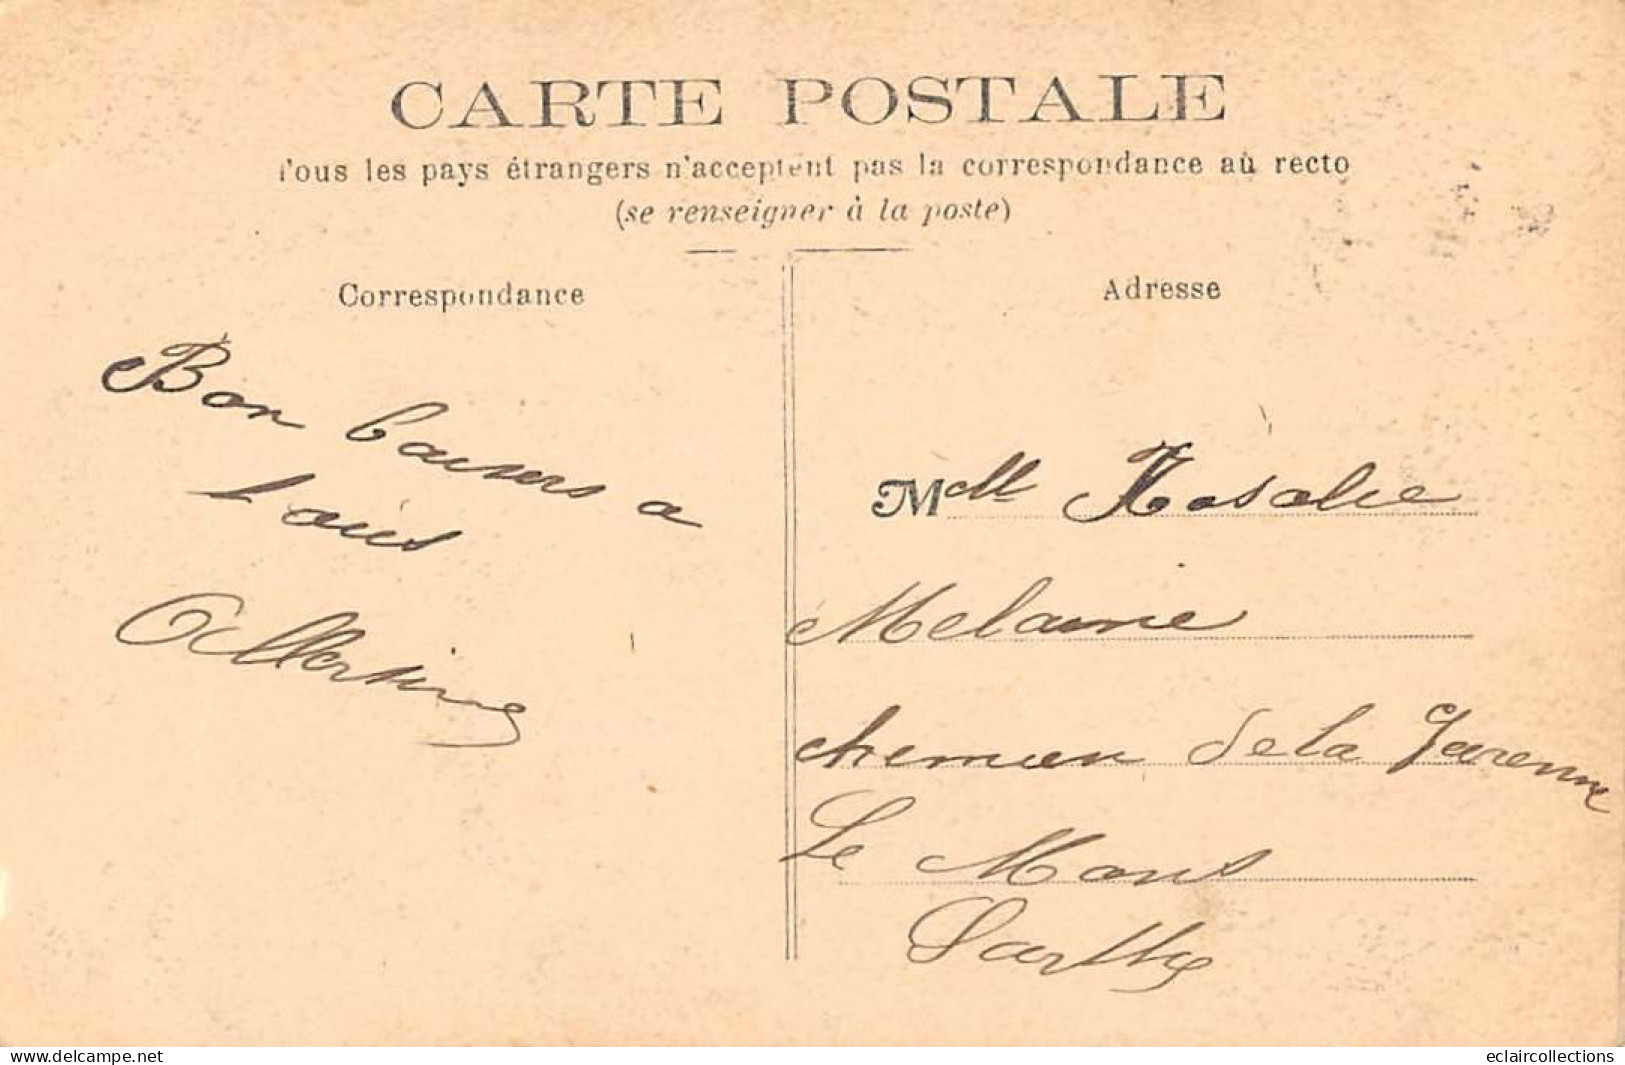 CARTE POSTALE
Tous les pays étrangers n'acceptent pas la correspondance aù recto
(se renseigner à la poste)
Correspondance
Adresse
Bon baisers a
Louis
Melle Rosalie
Melanie
chemain de la Garenne
Le Mans
Sarthe
www.delcampe.net
eclaircollections